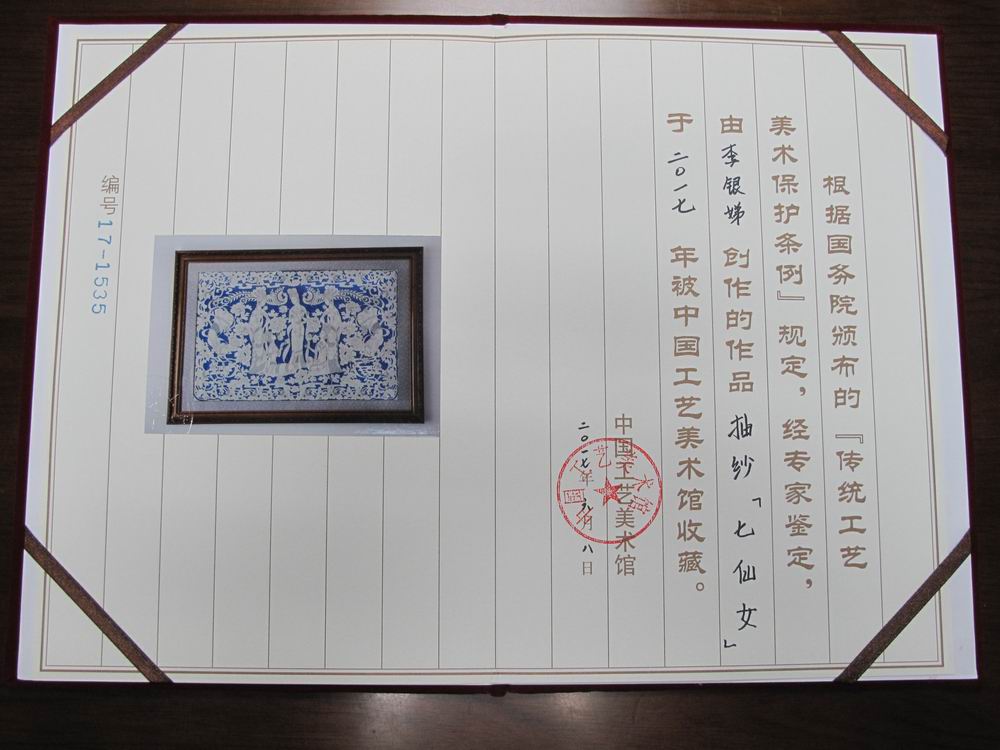 根据国务院颁布的『传统工艺
美术保护条例』规定，经专家鉴定，
由李银娣创作的作品抽纱「七仙女」
于二〇一七年被中国工艺美术馆收藏。
中国工艺美术馆
二〇一七年九月八日
编号17-1535